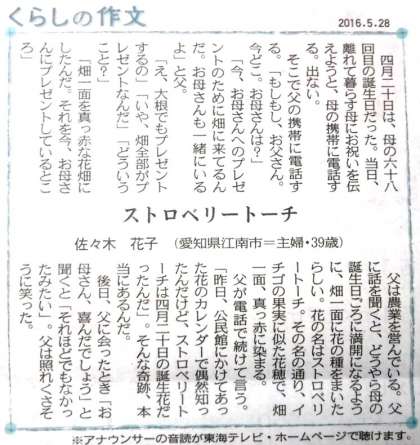 くらしの作文
2016.5.28
四月二十日は、母の六十八
回目の誕生日だった。当日、
離れて暮らす母にお祝いを伝
えようと、母の携帯に電話す
る。出ない。
そこで父の携帯に電話す
る。「もしもし、お父さん。
今どこ。お母さんは?」
「今、お母さんへのプレゼ
ントのために畑に来てるん
だ。お母さんも一緒にいる
よ」と父。
「え、大根でもプレゼント
するの」「いや、畑全部がプ
レゼントなんだ」「どういう
こと?」
「畑一面を真っ赤な花畑に
したんだ。それを今、お母さ
んにプレゼントしているとこ
ろ」
ストロベリートーチ
佐々木 花子 (愛知県江南市=主婦・39歳)
父は農業を営んでいる。父
に話を聞くと、どうやら母の
誕生日ごろに満開になるよう
に、畑一面に花の種をまいた
らしい。花の名はストロベリ
ートーチ。その名の通り、イ
チゴの果実に似た花穂で、畑
一面、真っ赤に染まる。
父が電話で続けて言う。
「昨日、公民館にかけてあっ
た花のカレンダーで偶然知っ
たんだけど、ストロベリート
ーチは四月二十日の誕生花だ
ったんだ」。そんな奇跡、本
当にあるんだ。
後日、父に会ったとき「お
母さん、喜んだでしょう」と
聞くと「それほどでもなかっ
たみたい」。父は照れくさそ
うに笑った。
※アナウンサーの音読が東海テレビ・ホームページで聴けます